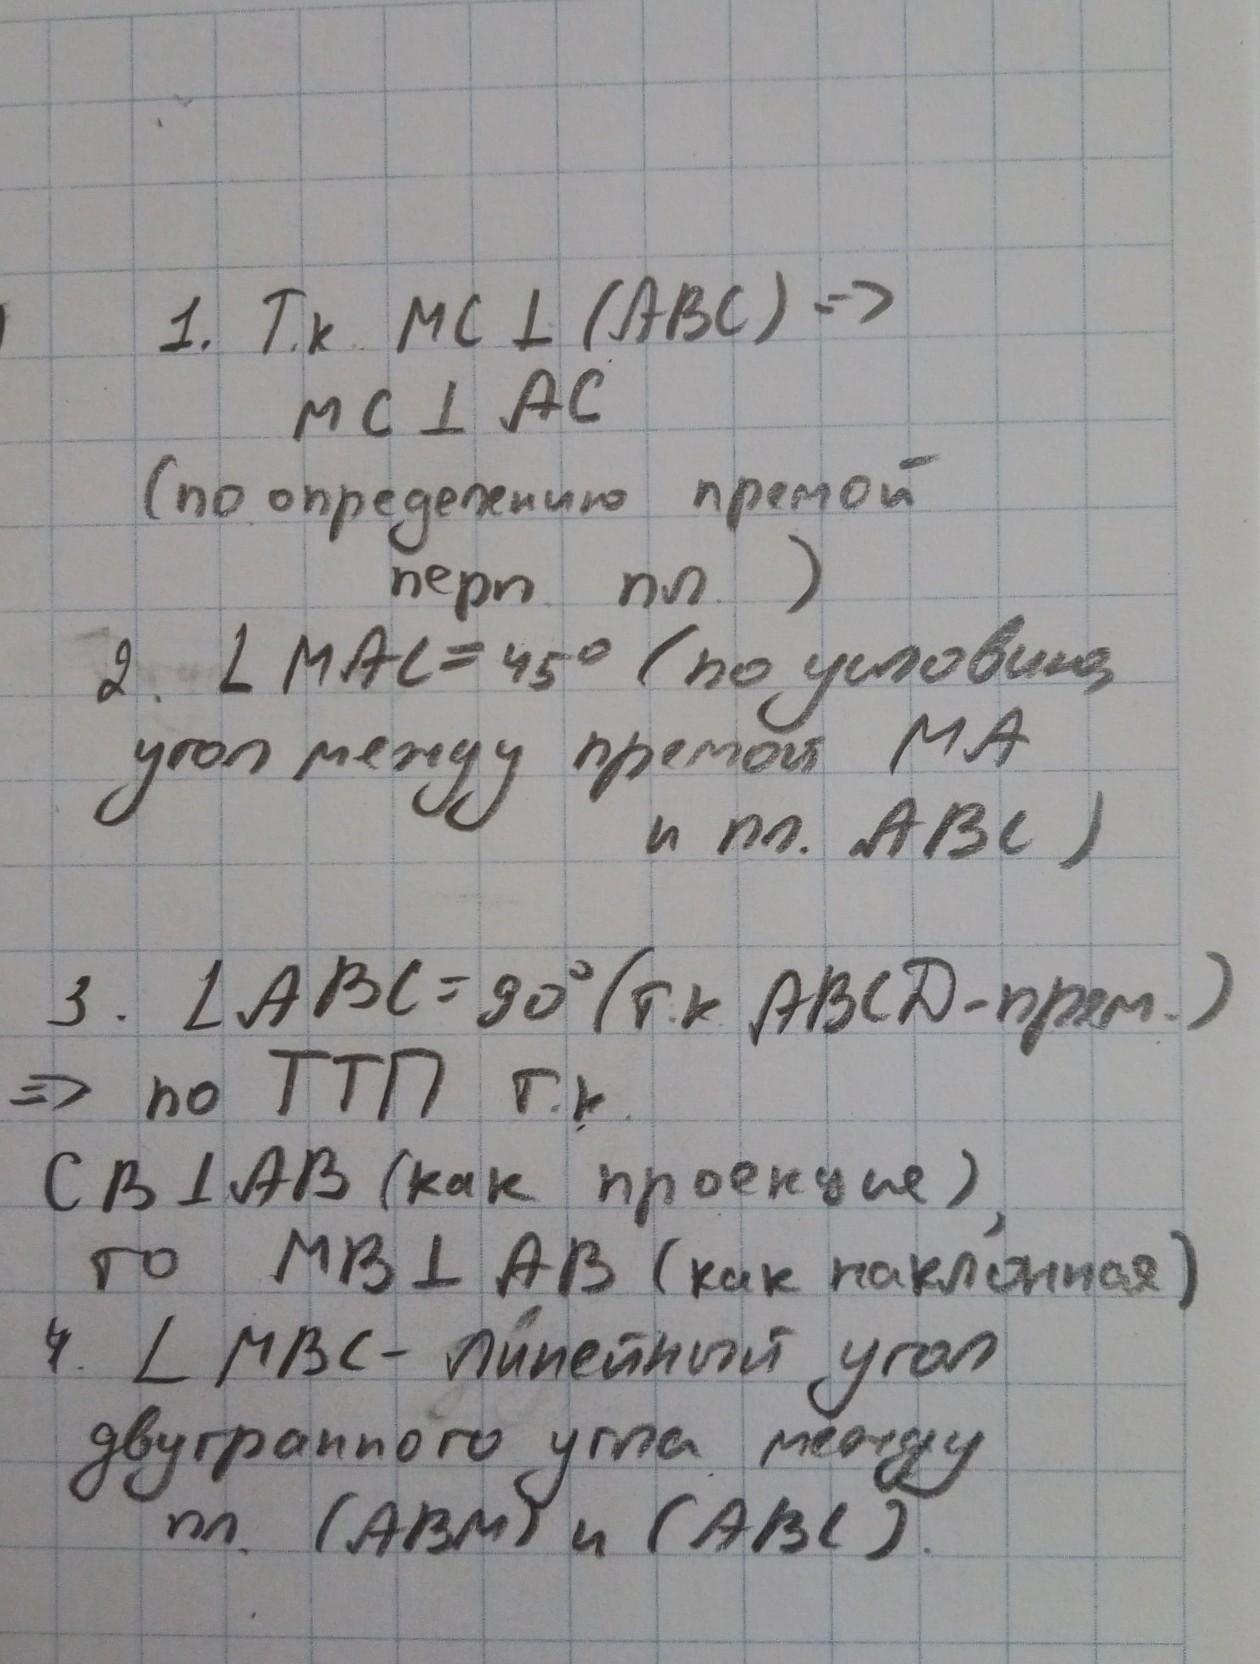 1. Т.к. MC ⊥ (ABC) =>
MC ⊥ AC
(по определению прямой
перп. пл.)
2. ∠ MAC = 45° (по условию,
угол между прямой MA
и пл. ABC)
3. ∠ABC = 90° (т.к ABCD - прям.)
=> по ТТП т.к.
CB ⊥ AB (как проекция),
то MB ⊥ AB (как наклонная)
4. ∠ MBC - линейный угол
двугранного угла между
пл. (ABM) и (ABC).